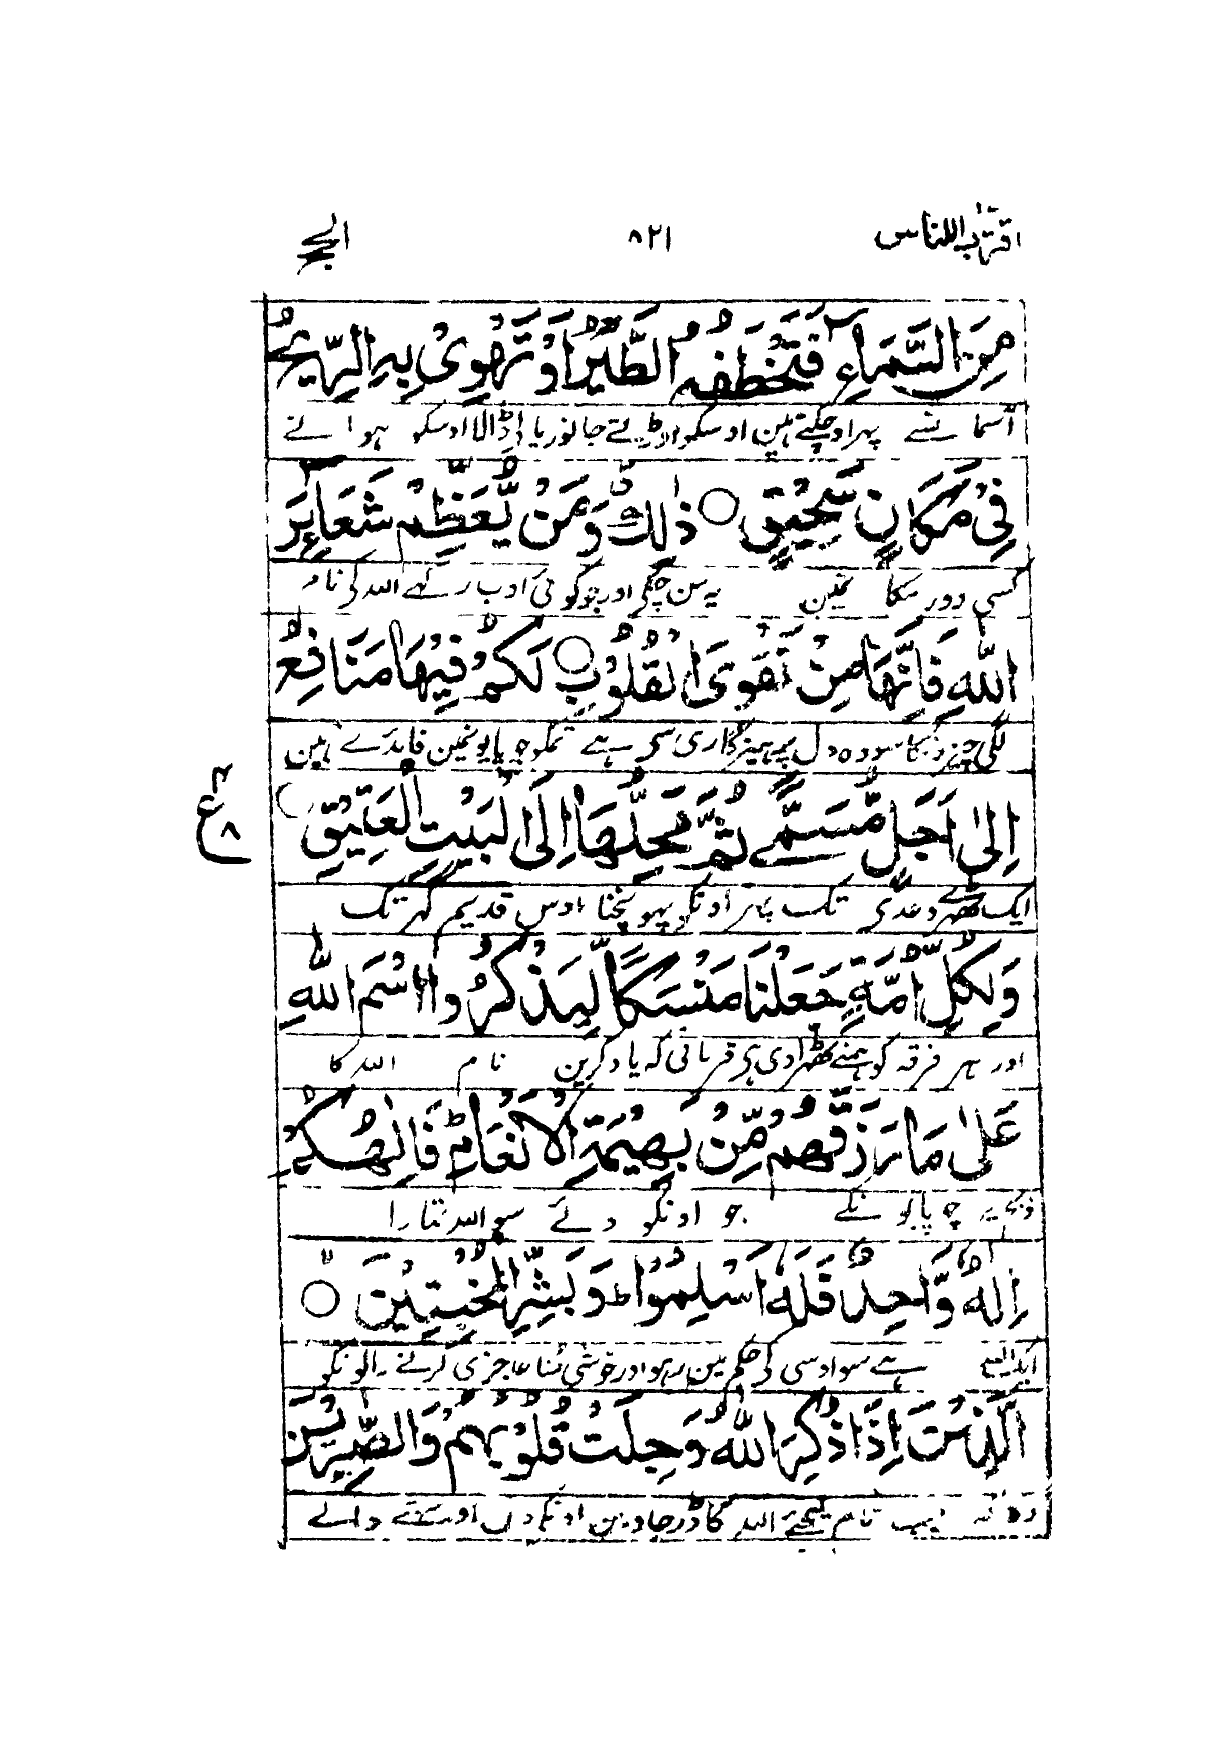 اقترب للناس ٨٢١ الحج
مِنَ السَّمَاءِ فَتَخْطَفُهُ الطَّيْرُ اَوْ تَهْوِیْ بِهِ الرِّيْحُ
آسمان سے پہر اوچکتے ہین اوسکو اوڑتے جانور یا لے ڈالا اوسکو ہوا نے
فِیْ مَكَانٍ سَحِيْقٍ ○ ذٰلِكَ وَمَنْ يُّعَظِّمْ شَعَآئِرَ
کسی دور مکا نمین یہ سن چکی اور جو کوئی ادب رکھے اللہ کی نام
اللّٰهِ فَاِنَّهَا مِنْ تَقْوَی الْقُلُوْبِ ○ لَكُمْ فِيْهَا مَنَافِعُ
لگی چیزونکا سو وہ دل پرہیزگاری سی ہے تمکو چوپایونمین فایدے ہین
اِلٰٓی اَجَلٍ مُّسَمًّی ثُمَّ مَحِلُّهَا اِلَی الْبَيْتِ الْعَتِيْقِ ○
ع ٤ ٨
ایک ٹھہرے وعدی تک پہر اونکو پہونچنا اوس قدیم گھر تک
وَلِكُلِّ اُمَّةٍ جَعَلْنَا مَنْسَكًا لِّيَذْكُرُوا اسْمَ اللّٰهِ
اور ہر فرقہ کو ہمنے ٹھہرادی ہی قربانی کہ یاد کرین نام اللہ کا
عَلٰی مَا رَزَقَهُمْ مِّنْ بَهِيْمَةِ الْاَنْعَامِ ط فَاِلٰهُكُمْ
ذبح پر چوپایونکے جو اونکو دئے سو اللہ تمہارا
اِلٰهٌ وَّاحِدٌ فَلَهٗٓ اَسْلِمُوْا ط وَبَشِّرِ الْمُخْبِتِيْنَ ○
ایک اللہ ہے سو اوسی کی حکم مین رہو اور خوشی سنا عاجزی کرنے والونکو
الَّذِيْنَ اِذَا ذُكِرَ اللّٰهُ وَجِلَتْ قُلُوْبُهُمْ وَالصّٰبِرِيْنَ
وہ کہ جب نام لیجئے اللہ کا ڈر جاوین اونکی دل اور سہنے والے